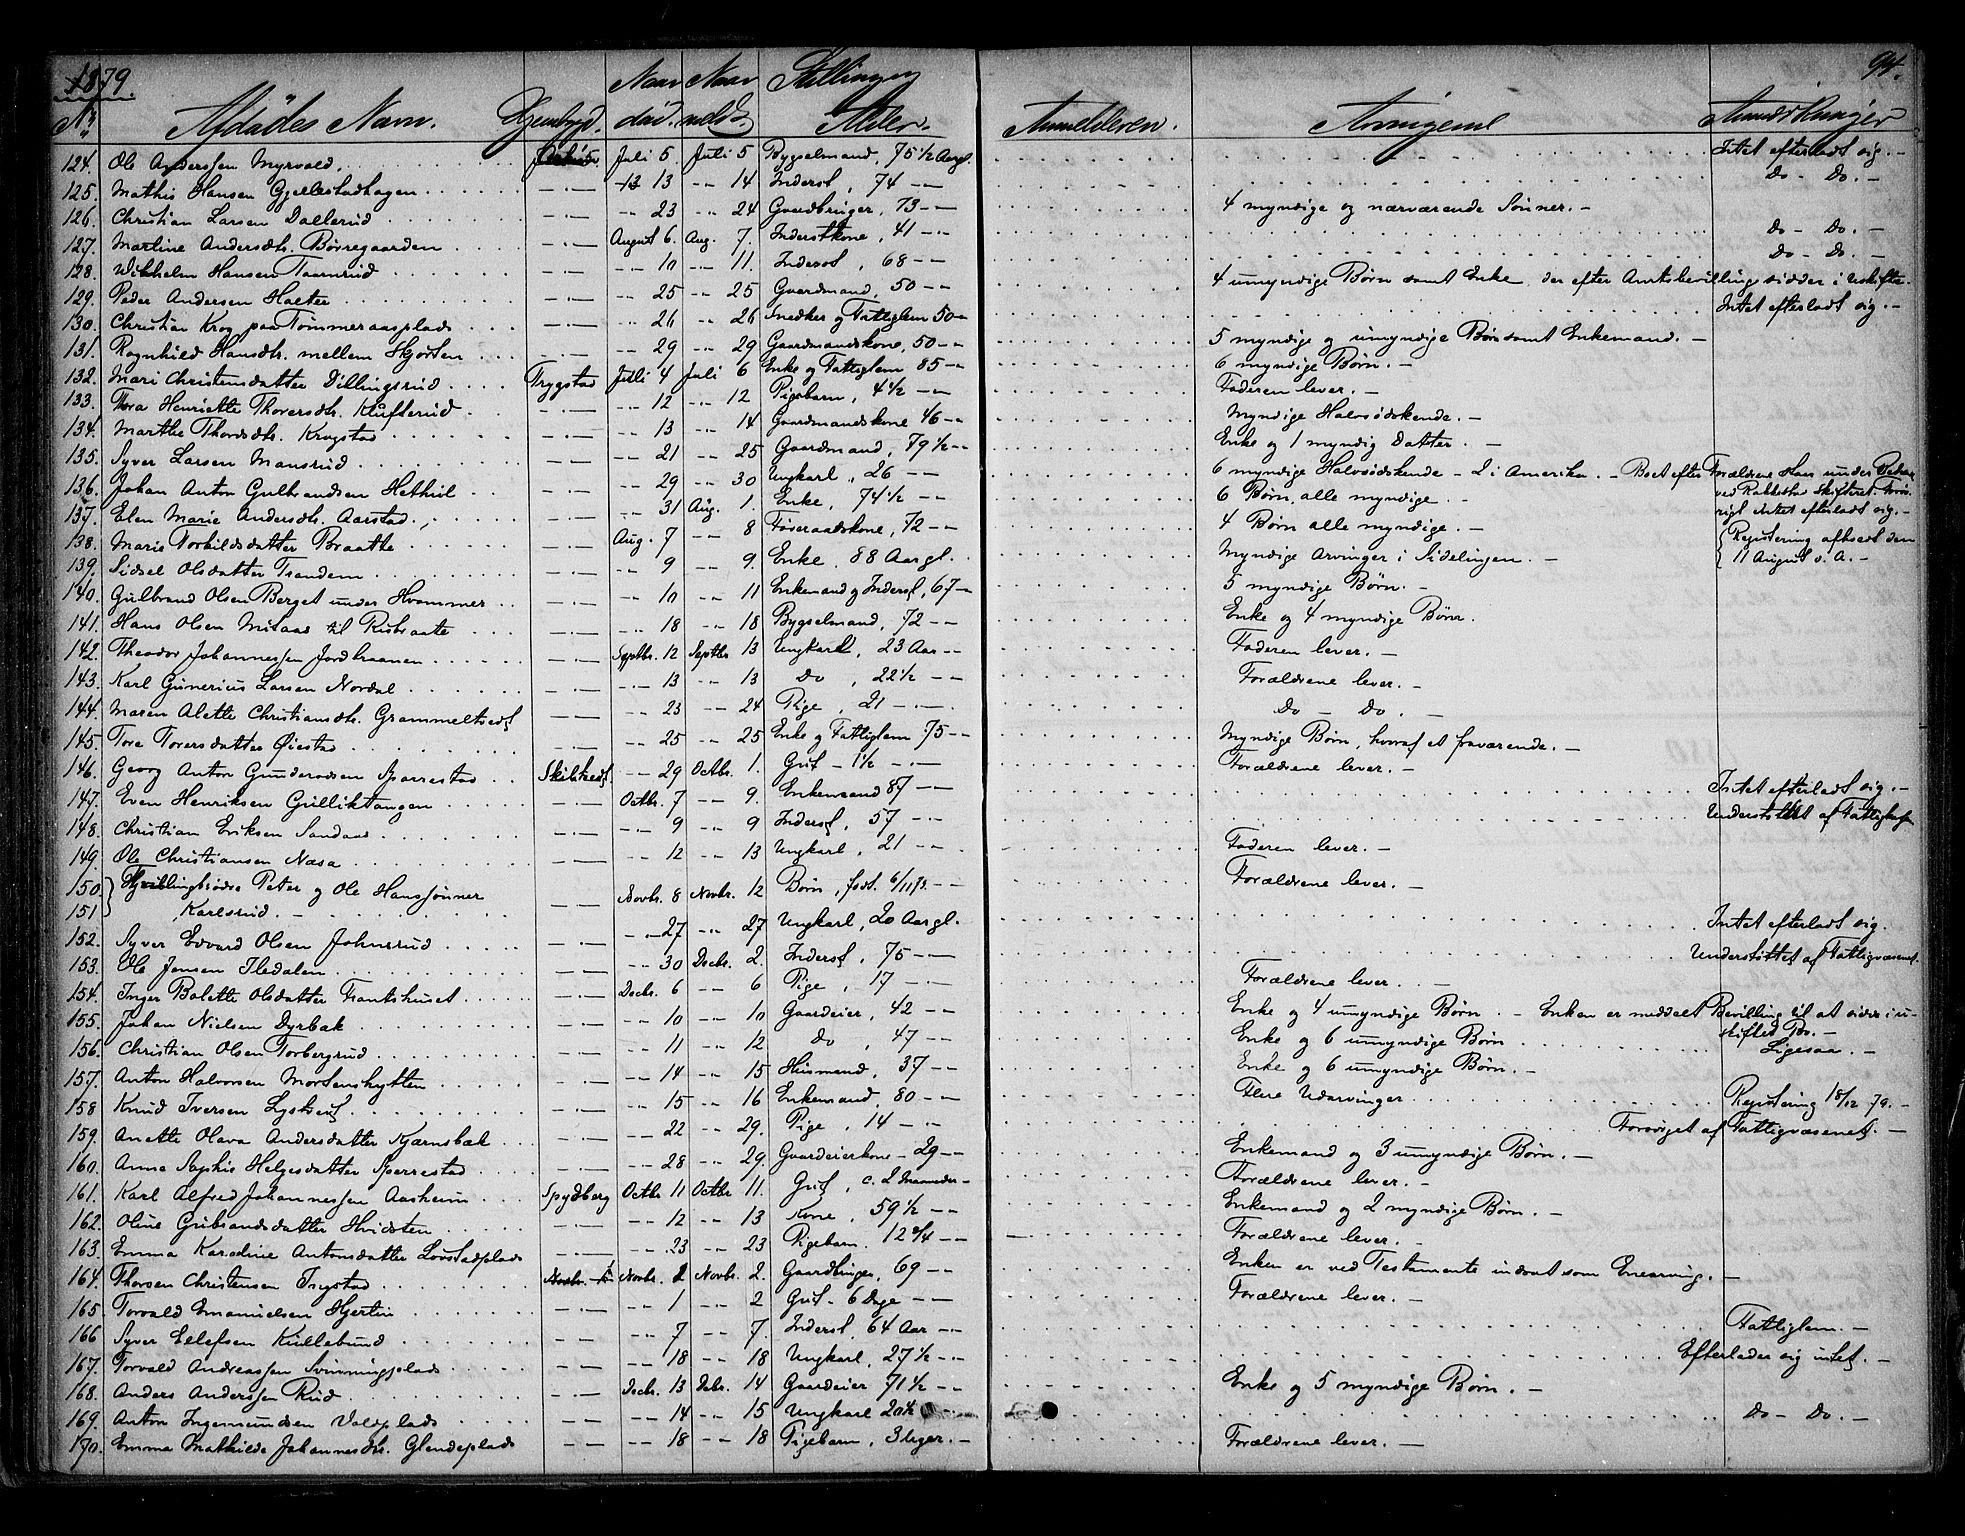 1879. 94.
No Afdødes Navn. Hjembygd. Naar død. Naar meldt Stilling og Alder. Anmelderen. Arvingerne Anmærkninger
124. Ole Anderssen Myrvold. Juli 5. Juli 5 Bygselmand, 75 1/2 Aargl. Intet efterladt sig. -
125. Mathis Hansen Gjellestadhagen 13 -"- 14 Inderst, 74 -"- Do - Do. -
126. Christian Larsen Dallerud -"- 23 -"- 24 Gaardbruger, 73 -"- 4 myndige og nærværende Sønner. -
127. Martine Andersdtr. Børregaarden August 6. Aug. 7. Inderstkone, 41 -"- Do - Do. -
128. Wilhelm Hansen Taarnrud -"- 10 -"- 11. Inderst, 68 -"- Do - Do. -
129. Peder Andersen Haeter -"- 25 -"- 25 Gaardmand, 50 -"- 4 umyndige Børn samt Enke, der efter Amtsbevilling sidder i Uskifte.
130. Christian Krog paa Tømmeraasplads -"- 26 -"- 26 Snedker og Fattiglem 50 - Intet efterladt sig. -
131. Ragnhild Hansdtr. mellem Skjøten -"- 29 -"- 29 Gaardmandskone, 50 -"- 5 myndige og umyndige Børn samt Enkemand. -
132. Mari Christensdatter Dillingsrud Trygstad Juli 4 Juli 6 Enke og Fattiglem 85 -"- 6 myndige Børn. -
133. Thora Henriette Thoversdtr. Kufterud -"- 12 -"- 12 Pigebarn, 4 1/2 -"- Faderen lever. -
134. Marthe Thordsdtr. Krogstad -"- 13 -"- 14 Gaardmandskone 46 -"- Myndige Halvsødskende. -
135. Syver Larsen Mansrud -"- 21 -"- 25 Gaardmand, 79 1/2 -"- Enke og 1 myndig Datter. -
136. Johan Anton Gulbrandsen Hethul -"- 29 -"- 30 Ungkarl, 26 -"- 6 myndige Halvsødskende - 2 i Amerika. - Boet efter Forældrene Han under
137. Elen Marie Andersdtr. Aarstad -"- 31 Aug. 1. Enke, 74 1/2 -"- 6 Børn, alle myndige. - ved Rakkestad Skifteret.
rigt intet efterladt sig. -
138. Marie Torkildsdatter Braathe Aug. 7 -"- 8 Føderaadskone, 72 -"- 4 Børn alle myndige. - Registering afholdt den
139. Sidsel Olsdatter Trandem -"- 9 -"- 9. Enke, 88 Aargl. Myndige Arvinger i Sidelinjen. - 11 August d. A. -
140. Gulbrand Olsen Berget under Hvammer -"- 10 -"- 11 Enkemand og Inderst, 67 - 5 myndige Børn. -
141. Hans Olsen Milaas til Risbraate -"- 18 -"- 18 Bygselmand, 72 -"- Enke og 4 myndige Børn.
142. Theodor Johannessen Jordhraanen Septbr. 12 Septbr 13 Ungkarl, 23 Aar -"- Faderen lever. -
143. Karl Gunerius Larsen Nordal -"- 13 -"- 13 Do, 22 1/2 -"- Forældrene lever. -
144. Maren Alette Christiansdtr. Grammeltvedt -"- 23 -"- 24 Pige, 21 -"- Do - Do. -
145. Tore Toversdatter Øiestad -"- 25 -"- 25 Enke og Fattiglem 75 -"- Myndige Børn, hvoraf et fraværende. -
146. Georg Anton Gundersen Sperrestad Skibtvedt -"- 29 Octbr. 1. Gut - 1 1/2 -"- Forældrene lever. -
147. Even Henriksen Gulliktangen Octbr. 7 -"- 9. Enkemand 87 -"- Intet efterladt sig. -
148. Christian Eriksen Sandaas -"- 9 -"- 9 Inderst, 57 -"- Understøttet af Fattigkassen
149. Ole Christiansen Næsa -"- 12 -"- 13 Ungkarl, 21 -"- Faderen lever. -
150. Tvillingbrødre Peter og Ole Hanssønner Novbr. 8 Novbr. 12 Børn, født 6/11 73. -"- Forældrene lever. -
151 Karlsrud. -
152. Syver Edvard Olsen Johnsrud -"- 27 -"- 27 Ungkarl, 20 Aargl. Intet efterladt sig.
153. Ole Jensen Iledalen -"- 30 Decbr. 2. Inderst, 75 -"- Understøttet af Fattigvæsenet.
154. Inger Bolette Olsdatter Frantshuset Decbr. 6 -"- 6 Pige, 17 -"- Forældrene lever. -
155. Johan Nielsen Dyrbak -"- 10 -"- 10 Gaardeier, 42 -"- Enke og 4 umyndige Børn. - Enken er meddelt Bevilling til at sidde i u-
skiftet Bo. -
156. Christian Olsen Torbergrud -"- 11 -"- 12 Do, 47 -"- Enke og 6 umyndige Børn Ligesaa. -
157. Anton Halvorsen Mortenshytten -"- 14 -"- 15 Husmand, 37 -"- Enke og 6 umyndige Børn. -
158 Knud Iversen Lystvet -"- 15 -"- 16 Enkemand, 80 -"- Flere Udarvinger Registering 18/12 79. -
159. Anette Olava Andersdatter Kjærnsbæk -"- 22 -"- 29. Pige, 14 -"- Forsørget af Fattigvæsenet. -
160. Anna Sophie Helgesdatter Sperrestad -"- 28 -"- 29. Gaardeierkone - 29 -"- Enkemand og 3 umyndige Børn. -
161. Karl Alfred Johannessen Aasheim Spydberg Octbr 11 Octbr 11. Gut, c. 2 Maaneder - Forældrene lever. -
162. Oline Gulbrandsdatter Hvidsten -"- 12 -"- 13 Kone, 59 1/2 -"- Enkemand og 2 myndige Børn. -
163. Emma Karoline Antonsdatter Lovstadplads -"- 23 -"- 23 Pigebarn. 12 3/4 -"- Forældrene lever. -
164. Thorsen Christensen Trygstad Novbr. 2 Novbr. 2. Gaardbruger, 69 -"- Enken er ved Testamente indsat som Enearving. -
165. Torvald Emanuelsen Hjertin -"- 1 -"- 2 Gut - 6 Dage -"- Forældrene lever. -
166 Syver Ellefsen Kullebund -"- 7 -"- 7. Inderst, 64 Aar -"- Fattiglem. -
167. Torvald Andreassen Svinningplads -"- 18 -"- 18 Ungkarl, 27 1/2 -"- Efterlader sig intet. -
168. Anders Anderssen Rud Decbr. 13 Debr. 14 Gaardeier 71 1/2 -"- Enke og 5 myndige Børn. -
169. Anton Ingemundsen Voldplads -"- 14 -"- 15 Ungkarl 20 1/2 Do - Do. -
170. Emma Mathilde Johannesdtr. Glendeplads -"- 18 -"- 18 Pigebarn, 3 Uger. - Forældrene lever. -